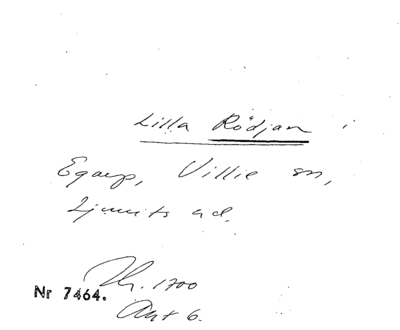 Lilla Rödjan i
Egarp, Villie sn,
Ljunits hd.
Nr 7464.
1700
6.